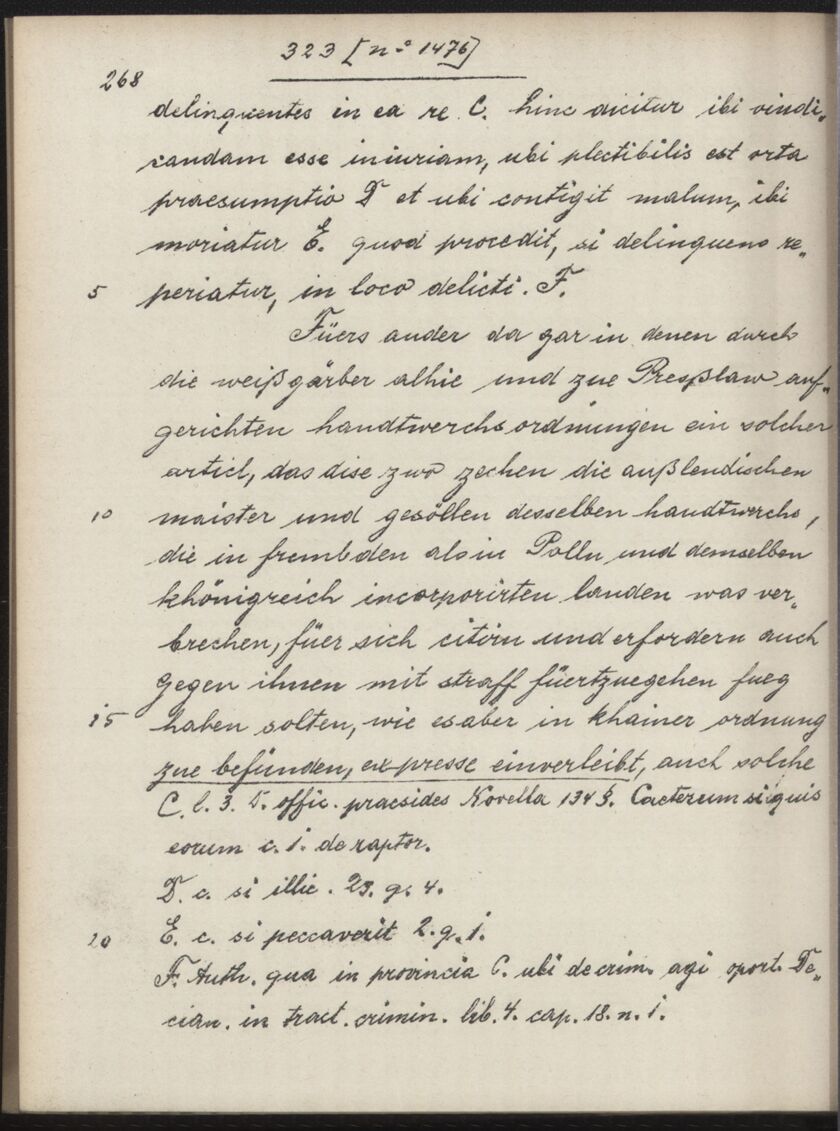 323 [nº 1476]
268
delinquentes in ea re C. hinc dicitur ibi vindi„
candam esse iniuriam, ubi plectibilis est orta
praesumptio D et ubi contigit malum, ibi
moriatur E. quod procedit, si delinquens re„
5 periatur, in loco delicti. F.
Füers ander da gar in denen durch
die weißgärber alhie und zue Preßlaw auf„
gerichten handtwerchsordnungen ein solcher
articl, das dise zwo zechen die außlendischen
10 maister und gesöllen desselben handtwerchs,
die in frembden als in Polln und demselben
khönigreich incorporirten landen was ver„
brechen, füer sich citirn und erfordern auch
gegen ihnen mit straff füertzuegehen fueg
15 haben solten, wie es aber in khainer ordnung
zue befünden, expresse einverleibt, auch solche
C. l. 3. D. offic. praesides Novella 134 §. Caeterum si quis
eorum c. 1. de raptor.
D. c. si illic. 23. q. 4.
20 E. c. si peccaverit 2. q. 1.
F. Auth. qua in provincia C. ubi de crim. agi oport. De„
cian. in tract. crimin. lib. 4. cap. 18. n. 1.